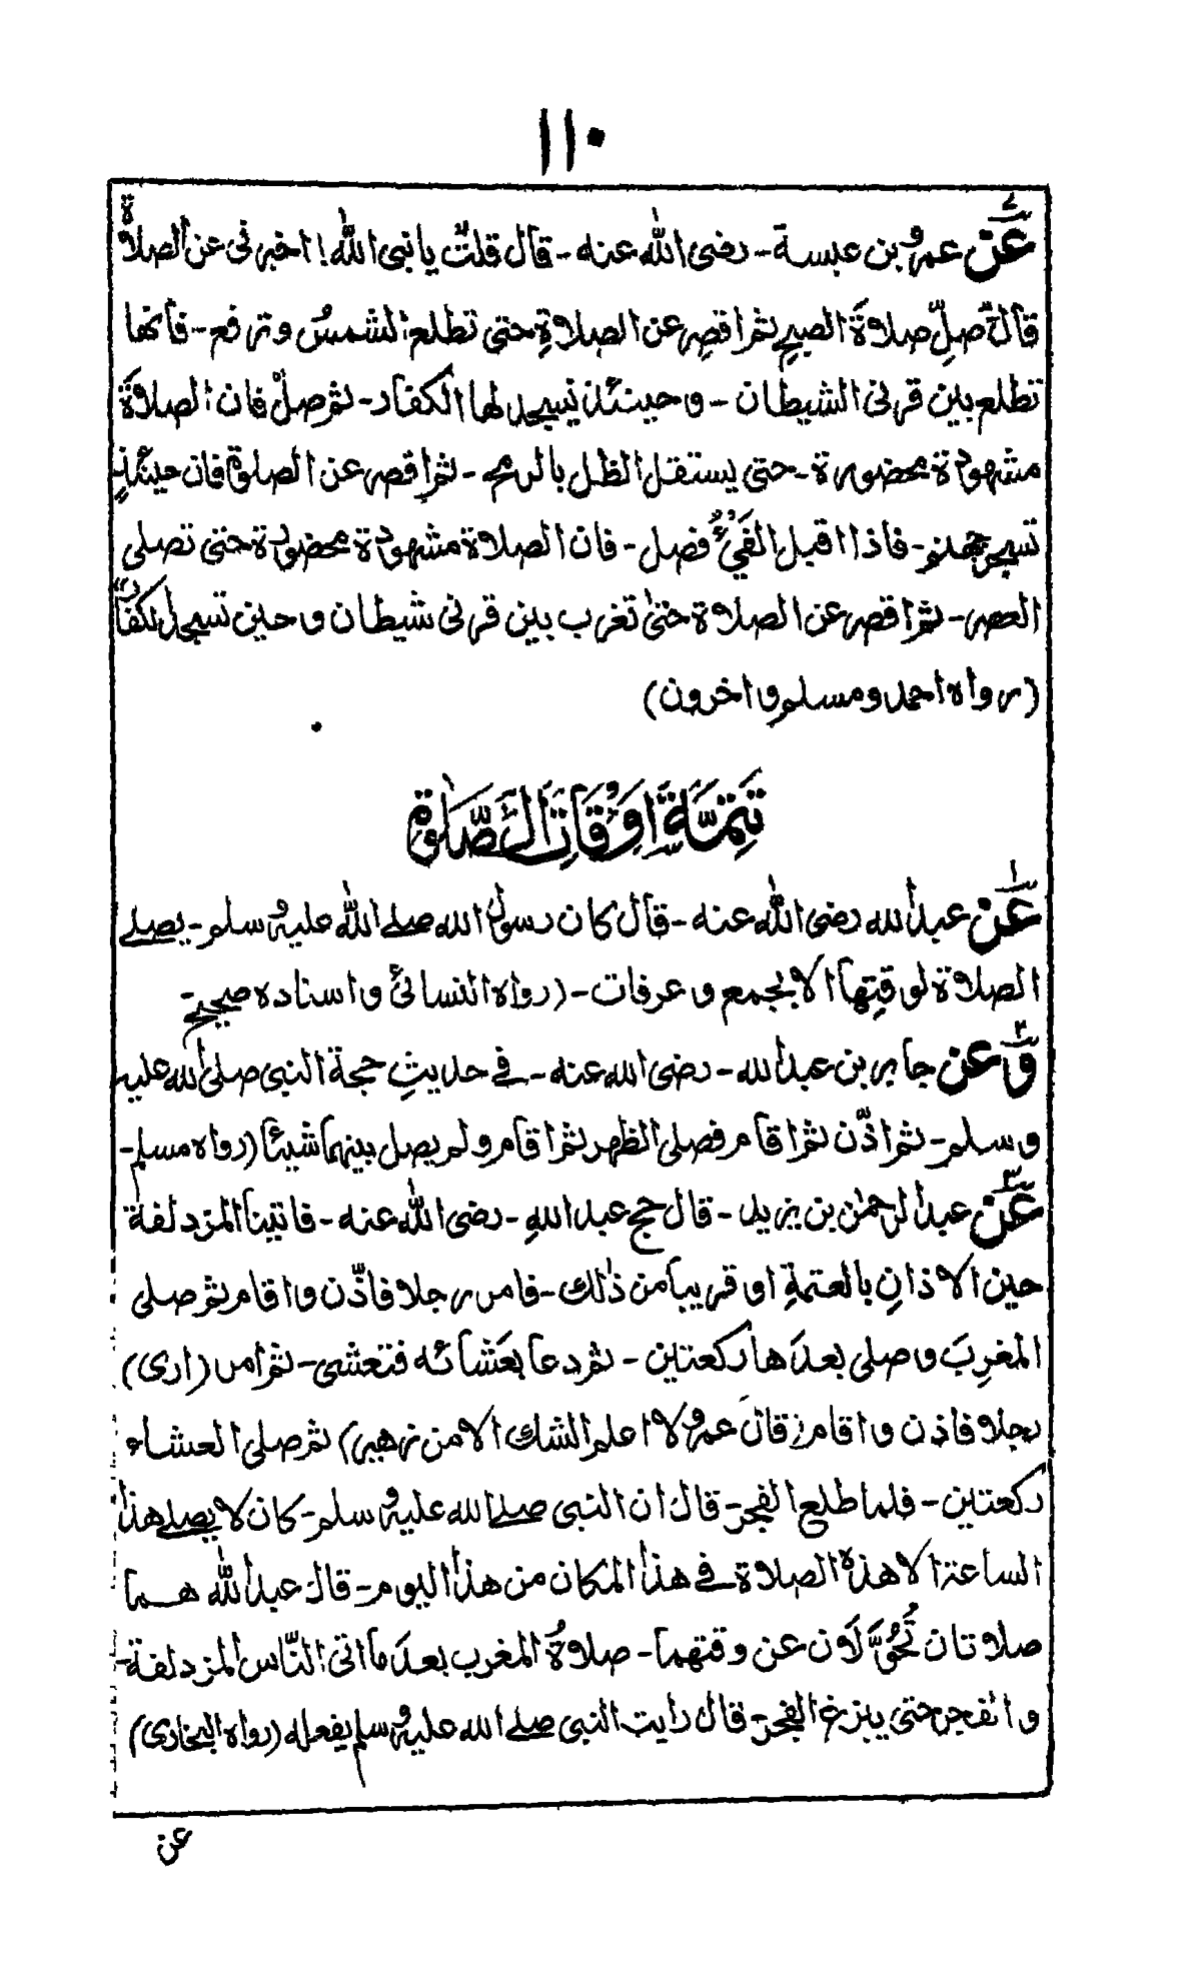 ١١٠
٧
عَنْ عمرو بن عبسة - رضى الله عنه - قال قلتُ يا نبى الله! اخبرنى عن الصلاة
قال صلِّ صلاةَ الصبحِ ثم اقصِر عن الصلاةِ حتى تطلع الشمسُ وترفع - فانها
تطلع بين قرنى الشيطان - وحينئذ يسجد لها الكفار - ثم صلْ فان الصلاةَ
مشهودة محضورة - حتى يستقل الظل بالرمح - ثم اقصر عن الصلوة فان حينئذٍ
تسجر جهنم - فاذا اقبل الفَيْءُ فصل - فان الصلاة مشهودة محضودة حتى تصلى
العصر - ثم اقصر عن الصلاة حتىٰ تغرب بين قرنى شيطان وحين تسجد لكفار
(رواه احمد ومسلم واخرون)
تَتِمَّةُ اَوْقَاتِ الصَّلٰوة
١
عَنْ عبد الله رضى الله عنه - قال كان رسول الله صلے الله عليه وسلم - يصلے
الصلاة لوقتِها الا بجمع وعرفات - (رواه النسائىُ واسناده صحيح -
٢
وَّعن جابر بن عبد الله - رضى الله عنه - فے حديثِ حجة النبى صلى الله عليه
وسلم - ثم اذّن ثم اقام فصلى الظهر ثم اقام ولم يصل بينهما شيئا (رواه مسلم -
٣
عَنْ عبد الرحمٰن بن يزيد - قال حج عبد اللهِ - رضى الله عنه - فاتينا المزدلفة
حين الاذانِ بالعتمةِ او قريبا من ذٰلك - فامر رجلا فاذّن واقام ثم صلى
المغرِبَ وصلى بعدَها ركعتين - ثم دعا بعَشائه فتعشى - ثم امر (ارى)
رجلا فاذن واقام (قال عمرو لا اعلم الشك الا من زهير) ثم صلى العشاء
ركعتين - فلما طلع الفجر - قال ان النبى صلے الله عليه وسلم - كان لا يصلے هذا
الساعة الا هذه الصلاة فے هذا المكان من هذا اليوم - قال عبد الله هما
صلاتان تُحُوَّلَان عن وقتهما - صلاةُ المغرب بعدَ ما اتى النّاس المزدلفة -
والفجر حتى يبزغ الفجر - قال رايت النبى صلے الله عليه وسلم يفعله (رواه البخارى)
عن